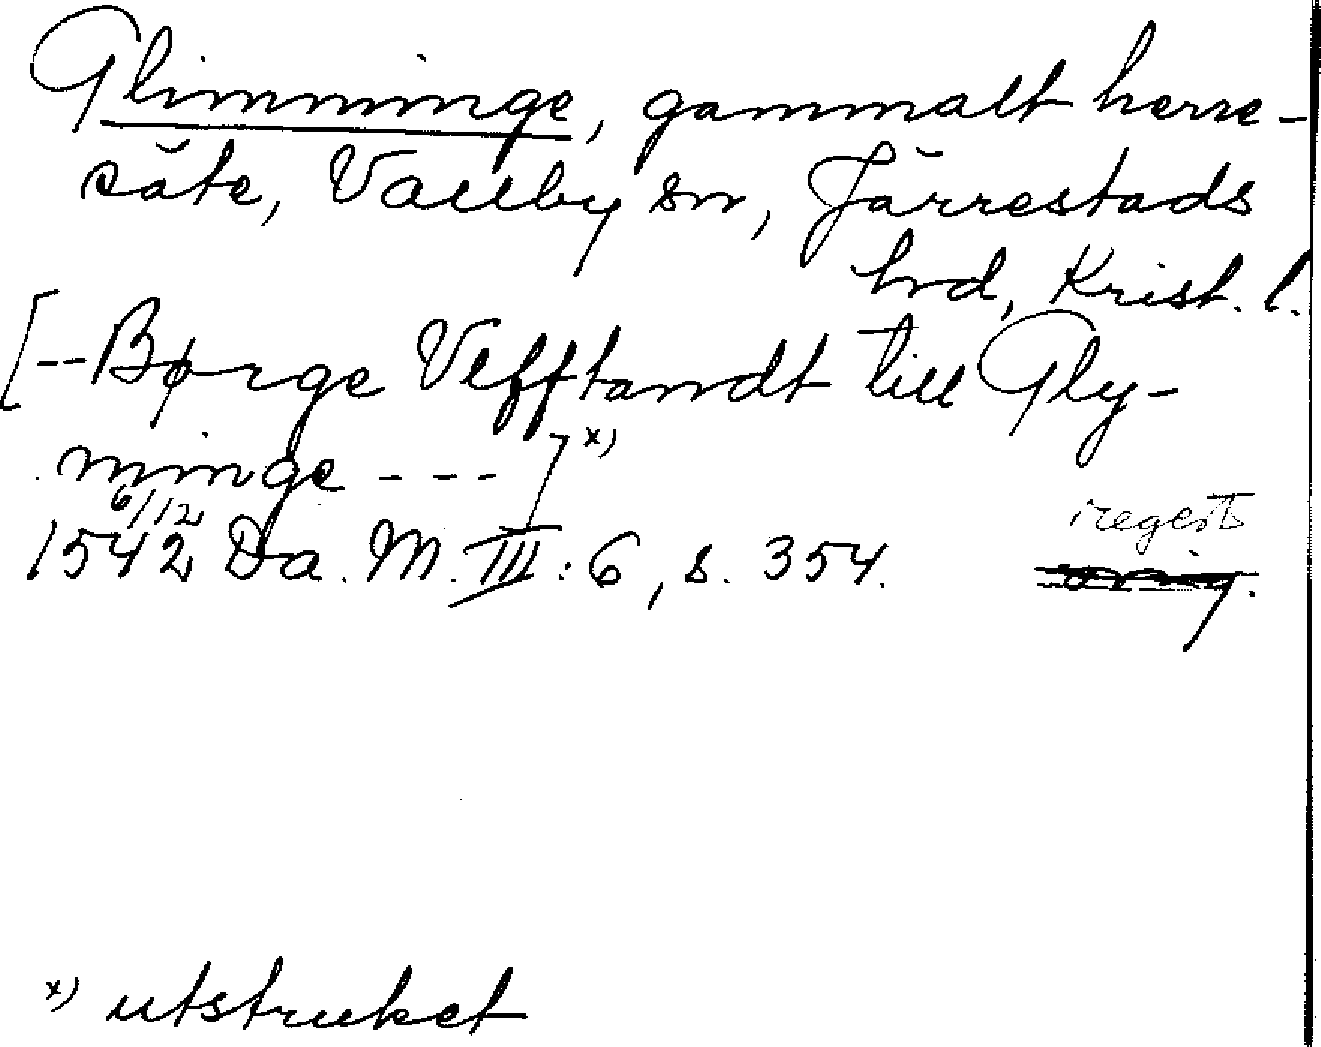 Glimminge, gammalt herre-
säte, Vallby sn, Järrestads
hrd, Krist. l.
[--Børge Vlfftandt till Gly-
minge - - - ]x)
6/12
1542 Da. M. III: 6, s. 354.
regest
orig.
x) utstruket